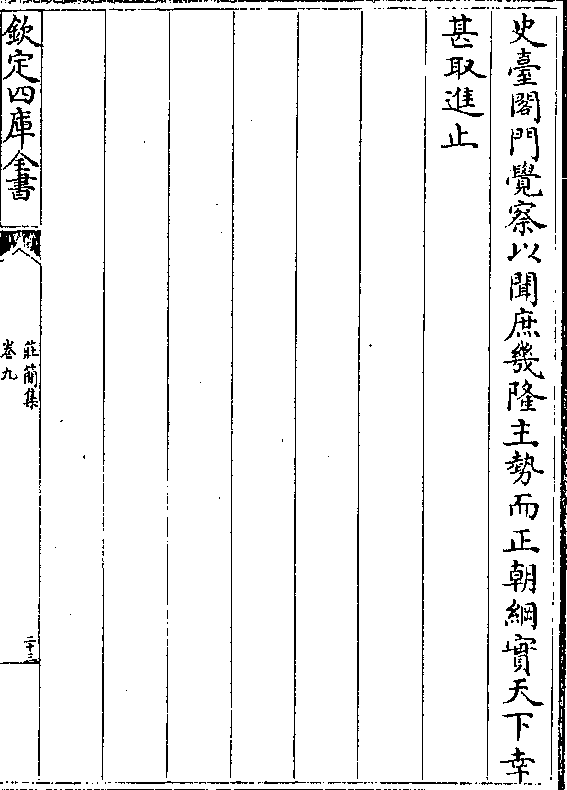 史臺閤門覺察以聞庶幾隆主勢而正朝綱實天下幸
甚取進止
欽定四庫全書
莊簡集
卷九
二十三